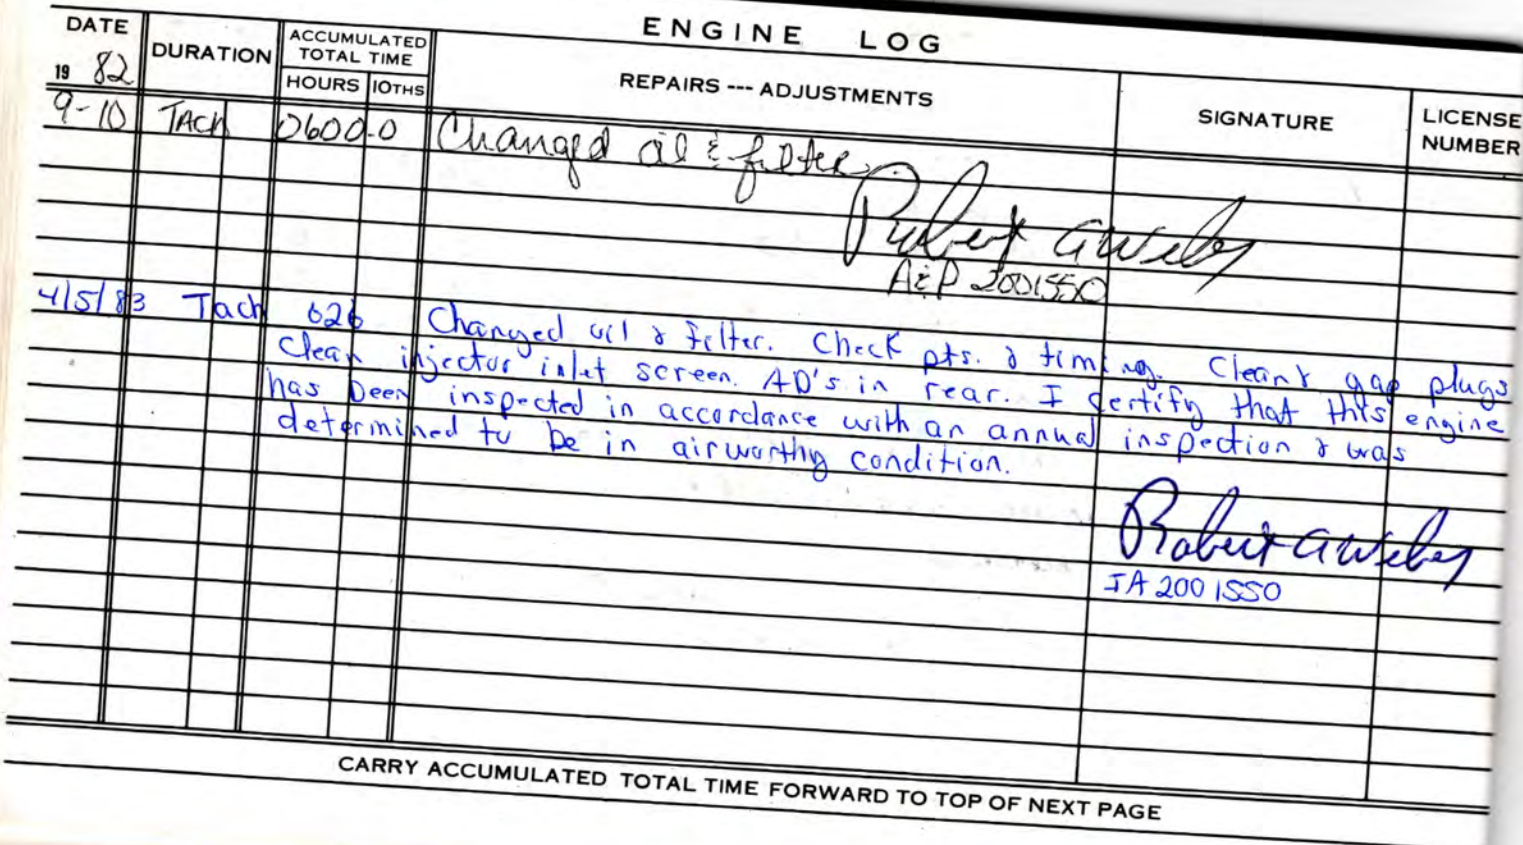 ENGINE LOG
DATE
19 82
DURATION
ACCUMULATED
TOTAL TIME
HOURS
10THS
REPAIRS --- ADJUSTMENTS
SIGNATURE
LICENSE
NUMBER
9-10 TACH 0600.0 Changed oil & filter
Robert A Weby
A&P 2001550
4/5/83 Tach 626 Changed oil & filter. Check pts. & timing. Clean & gap plugs
Clean injector inlet screen. AD's in rear. I certify that this engine
has been inspected in accordance with an annual inspection & was
determined to be in airworthy condition.
Robert A Weby
IA 2001550
CARRY ACCUMULATED TOTAL TIME FORWARD TO TOP OF NEXT PAGE